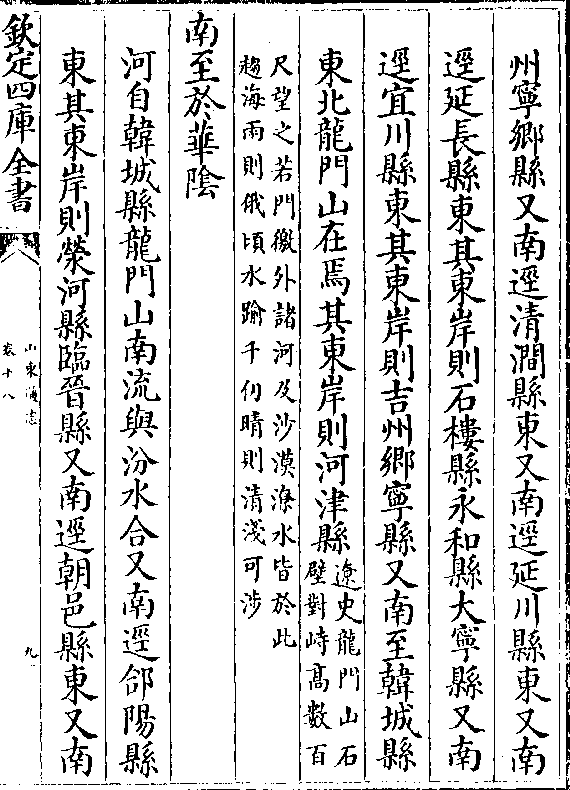 州寧鄉縣又南逕清澗縣東又南逕延川縣東又南
逕延長縣東其東岸則石樓縣永和縣大寧縣又南
逕宜川縣東其東岸則吉州鄉寧縣又南至韓城縣
東北龍門山在焉其東岸則河津縣遼史龍門山石壁對峙高數百
尺望之若門徼外諸河及沙漠潦水皆於此
趨海雨則俄頃水踰千仞晴則清淺可涉
南至於華陰
河自韓城縣龍門山南流與汾水合又南逕郃陽縣
東其東岸則滎河縣臨晉縣又南逕朝邑縣東又南
欽定四庫全書
山東通志
卷十八
九